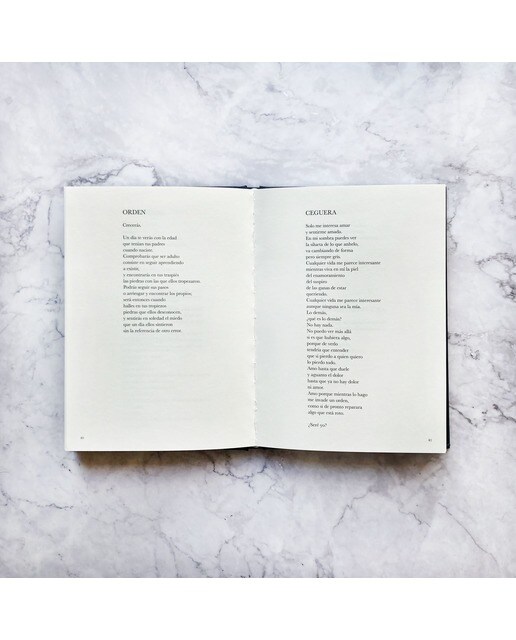 ORDEN
Crecería.
Un día te verás con la edad
que tenían tus padres
cuando naciste.
Comprobarás que ser adulto
consiste en seguir aprendiendo
a existir,
y encontrarás en tus traspiés
las piedras con las que ellos tropezaron.
Podrás seguir sus pasos
o arriesgar y encontrar los propios,
será entonces cuando
halles en tus tropiezos
piedras que ellos desconocen,
y sentirás en soledad el miedo
que un día ellos sintieron
sin la referencia de otro error.
CEGUERA
Solo me interesa amar
y sentirme amada.
En mi sombra puedes ver
la silueta de lo que anhelo,
va cambiando de forma
pero siempre gris.
Cualquier vida me parece interesante
mientras viva en mí la piel
del enamoramiento,
del suspiro
de las ganas de estar
queriendo.
Cualquier vida me parece interesante
aunque ninguna sea la mía.
Lo demás,
¿qué es lo demás?
No hay nada.
No puedo ver más allá
o es que hubiera algo,
porque de verlo
tendría que entender
que si pierdo a quien quiero
lo pierdo todo.
Amo hasta que duele
y aguanto el dolor
hasta que ya no hay dolor
ni amor.
Amo porque mientras lo hago
me invade un orden,
como si de pronto reparara
algo que está roto.
¿Seré yo?